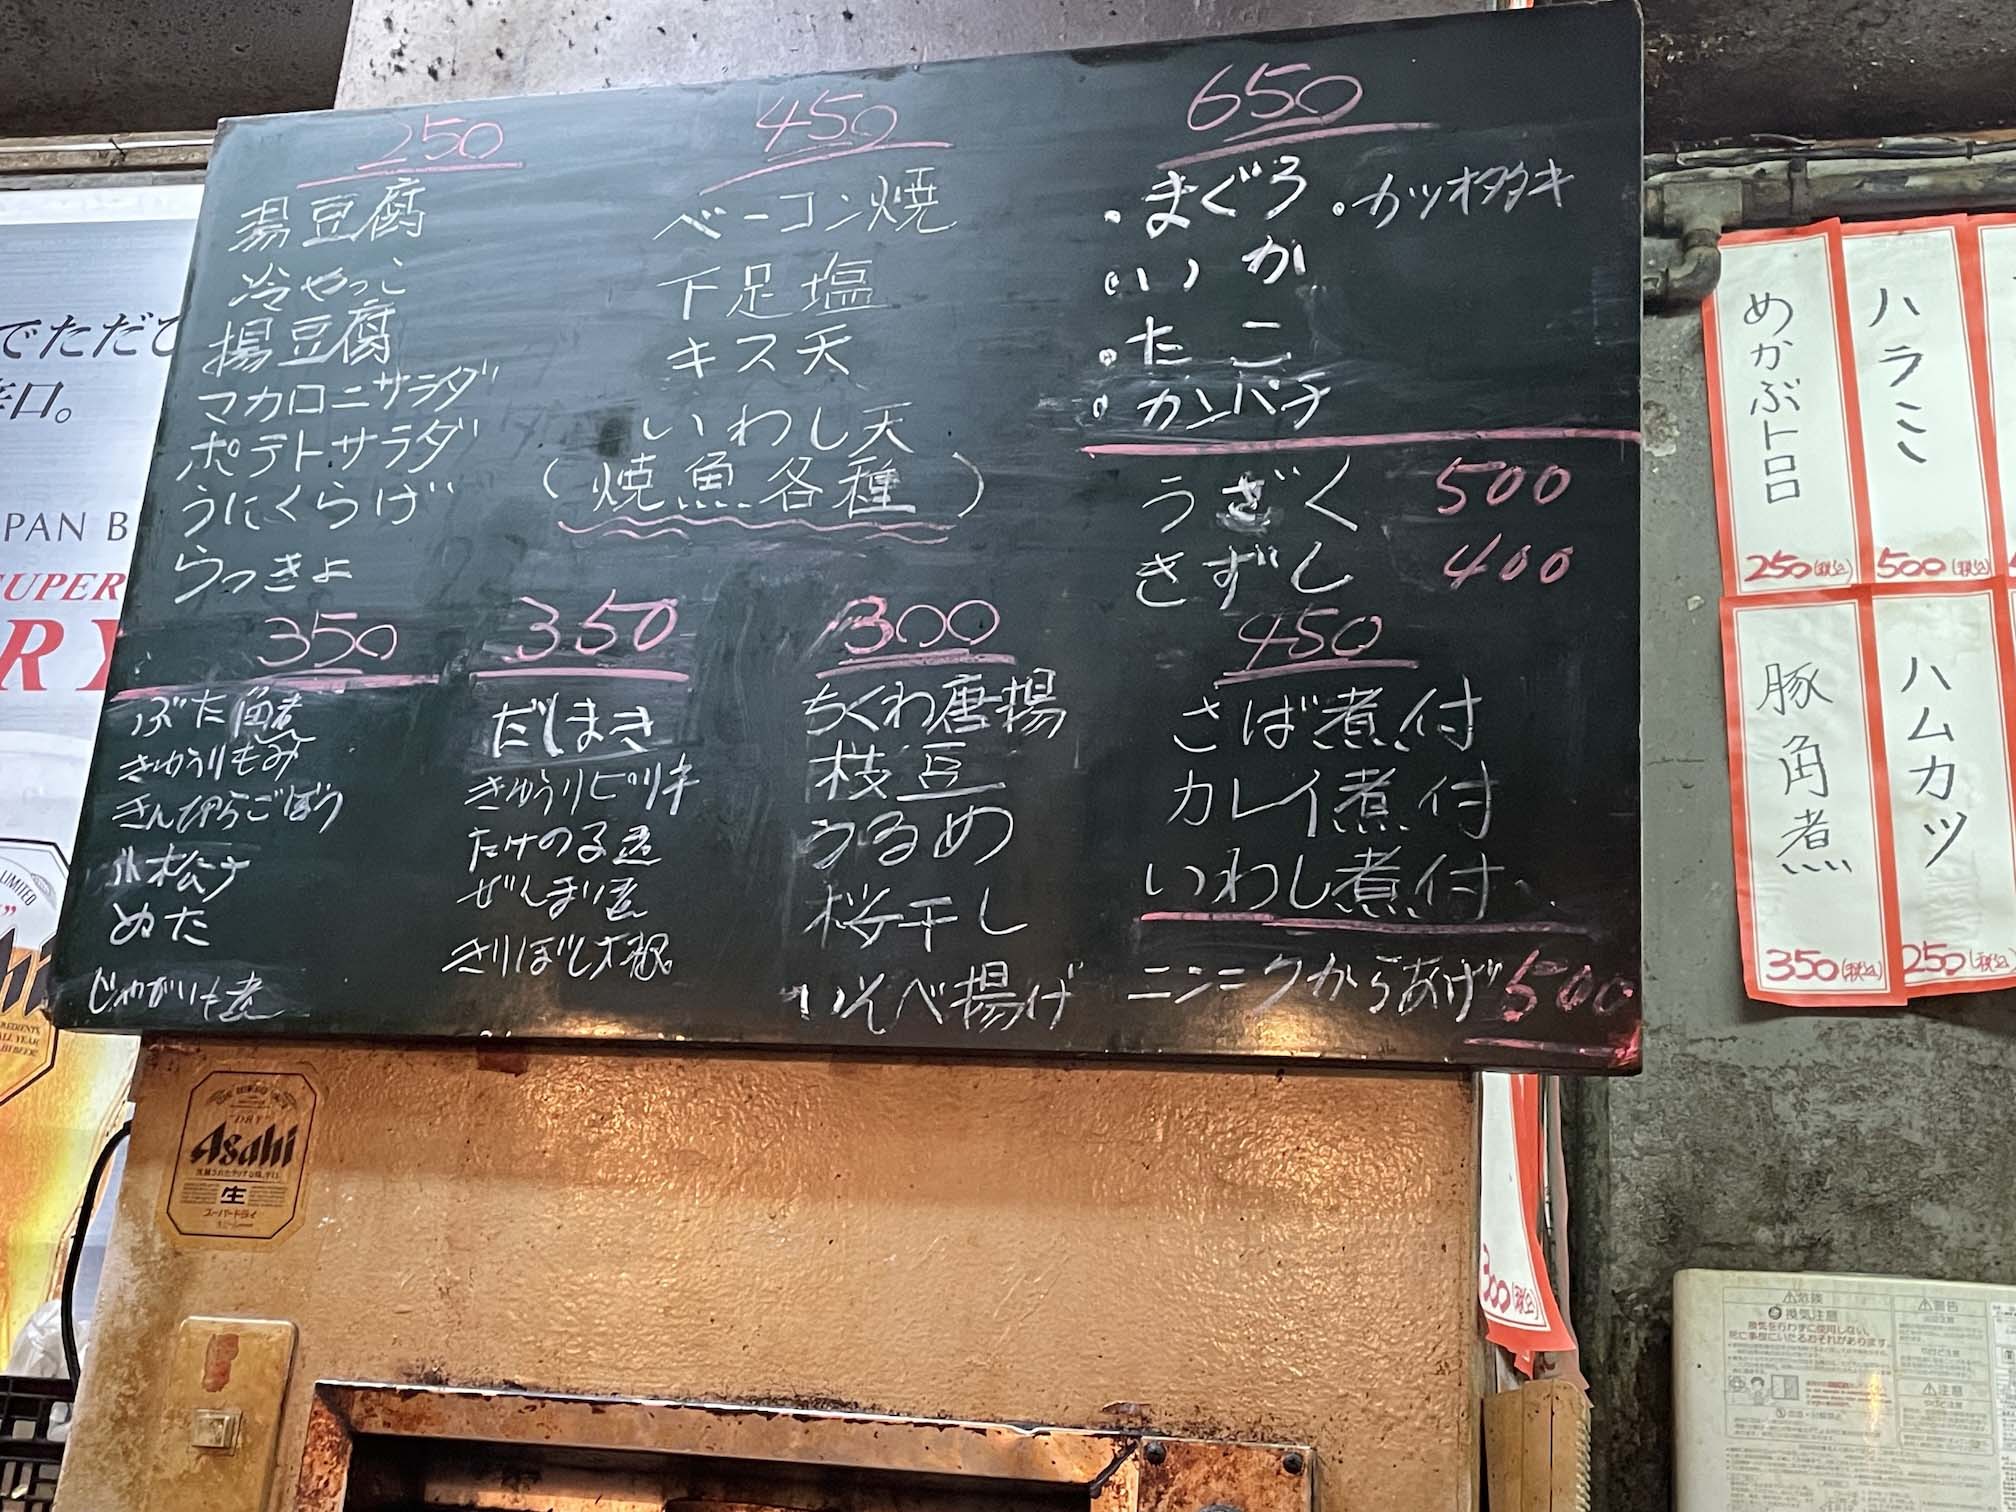 250
湯豆腐
冷やっこ
揚豆腐
マカロニサラダ
ポテトサラダ
うにくらげ
らっきょ
450
ベーコン焼
下足塩
キス天
いわし天
(焼魚各種)
650
・まぐろ ・カツオタタキ
・いか
・たこ
・カンパチ
うざく 500
きずし 400
350
ぶた角煮
きゅうりもみ
きんぴらごぼう
小松ナ
ぬた
じゃがいも煮
350
だしまき
きゅうりピリ辛
たけのこ煮
ぜんまい煮
きりぼし大根
300
ちくわ唐揚
枝豆
うるめ
桜干し
いそべ揚げ
450
さば煮付
カレイ煮付
いわし煮付
ニンニクからあげ 500
めかぶトロロ
250(税込)
ハラミ
500(税込)
豚角煮
350(税込)
ハムカツ
250(税込)
300(税込)
でただ
辛口。
PAN B
SUPER
RY
LIMITED
"DRY"
Asahi
生
スーパードライ
危険
換気注意
換気を行わずに使用しない。
死亡事故にいたるおそれがあります。
警告
注意